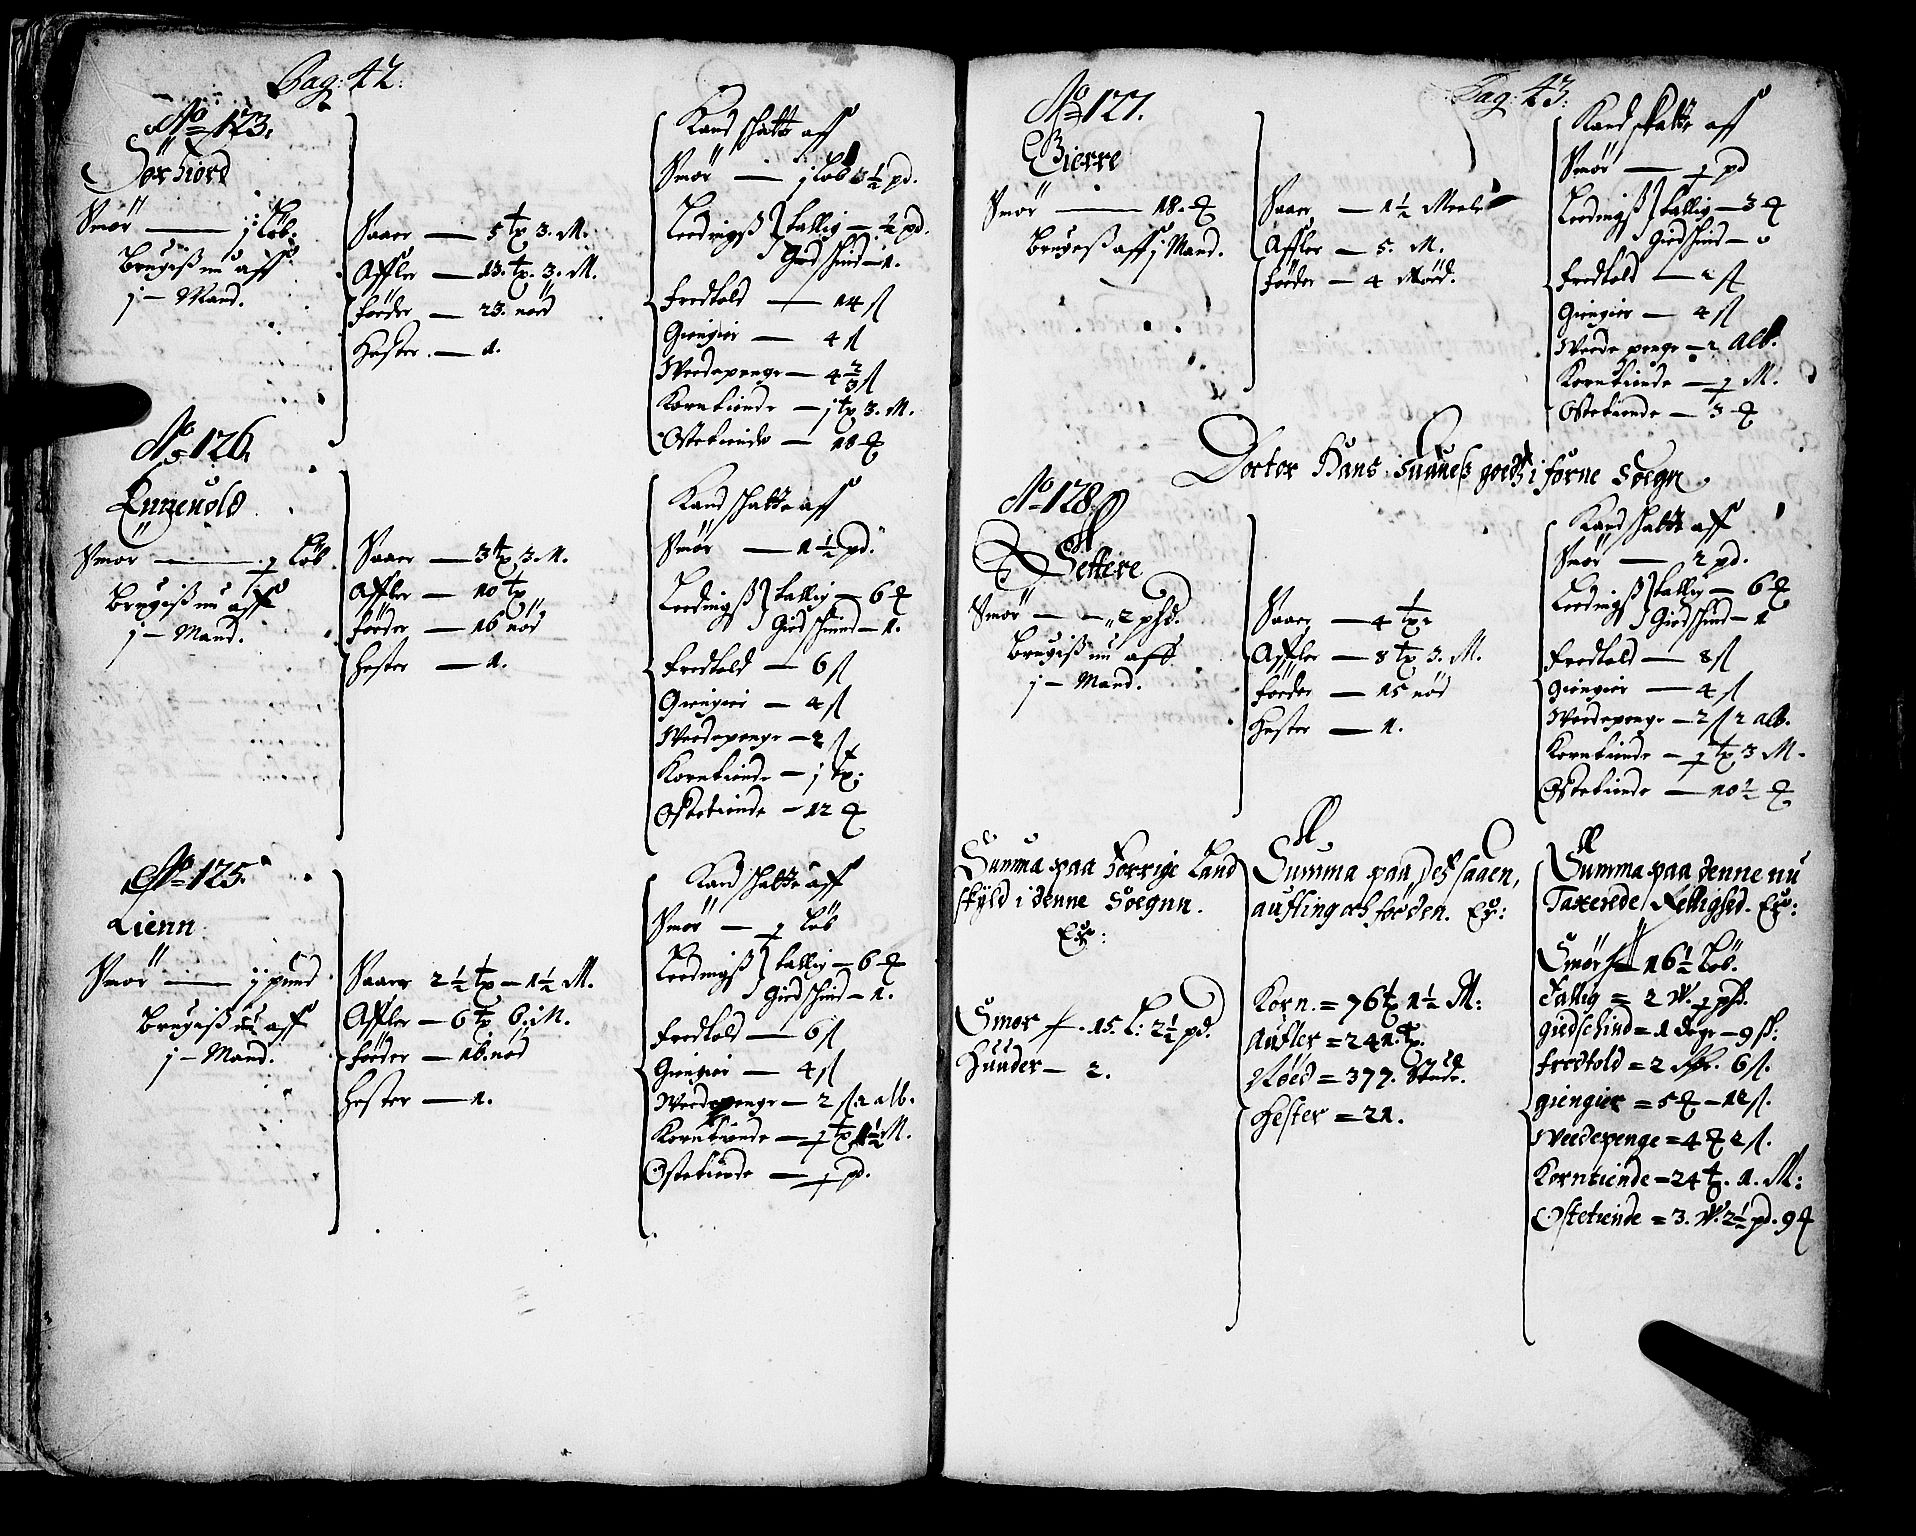 Pag: 42.
No 123.
Sørfiord
Smør — j Løb.
Brugiß nu aff
j – Mand.
Saaer — 5 tp 3. M.
Affler — 13. tp. 3. M.
føeder — 23. nød
Hester — 1.
Kand skatte aff
Smør — j løb 3½ pd.
Leedingß } tallig — ½ pd.
Giedskind — 1.
Fredtold — 14 ß
Giengier — 4 ß
Weedepenge — 4 2/3 ß
Korntiende — j tp 3. M.
Ostetiende — 18 ℔
No 126.
Ennevold
Smør — 1 Løb.
Brugiß nu aff
j – Mand.
Saaer — 3 tp 3. M.
Affler — 10 tp
føeder — 16 nød
Hester — 1.
Kand skatte aff
Smør — 1½ pd.
Leedingß } tallig — 6 ℔
Giedskind — 1.
Fredtold — 6 ß
Giengier — 4 ß
Weedepenge — 2 ß
Korntiende — j tp.
Ostetiende — 12 ℔
No 125.
Lienn
Smør — j pund
Brugiß nu aff
j – Mand.
Saaer 2½ tp — 1½ M.
Affler — 6 tp 6. M.
føeder — 16. nød
Hester — 1.
Kand skatte aff
Smør — 1 Løb
Leedingß } tallig — 6 ℔
Giedskind — 1.
Fredtold — 6 ß
Giengier — 4 ß
Weedepenge — 2 ß 2 alb.
Korntiende — 1 tp 1½ M.
Ostetiende — 1 pd.
Pag: 43.
No 127.
Bierre
Smør — 18. ℔
Brugeß aff j Mand.
Saaer — 1½ Meele
Affler — 5. M.
føeder — 4 Nøed.
Kand skatte aff
Smør — 1 pd
Leedingß } tallig — 3 ℔
Giedskind — 0
Fredtold — 2 ß
Giengier — 4 ß
Weedepenge — 2 Alb.
Korntiende — 1 M.
Ostetiende — 3 ℔
Doctor Hans goedß i forne Sogn
No 128.
Settere
Smør — 2 phd.
Brugiß nu aff
j – Mand.
Saaer — 4 tp
Affler — 8 tp 3. M.
føeder — 15 nød
Hester — 1.
Kand skatte aff
Smør — 2 pd.
Leedingß } tallig — 6 ℔
Giedskind — 1
Fredtold — 8 ß
Giengier — 4 ß
Weedepenge — 2 ß 2 alb.
Korntiende — 1 tp 3 M.
Ostetiende — 10½ ℔
Summa paa Forrige Land
skyld i denne Soegnn.
Er:
Smør — 15. L: 2½ pd.
Huuder — 2.
Summa paa Deß saaen,
aufling och føeden. Er:
Korn. = 76 tp 1½ M:
Aufler = 241. tp.
Nøed = 377. Støch.
Hester = 21.
Summa paa denne nu
Taxerede Rettighed. Er:
Smør — 16½ Løb.
Tallig = 2 W. 1 phd.
giedschind = 1 degr — 9 ß.
Fredtold = 2 6 ß.
giengier = 5 ℔ — 12 ß.
Weedepenge = 4 ℔ 2 ß.
Korntiende = 24 tp. 1. M:
Ostetiende = 3. W. 2½ pd. 9 ℔